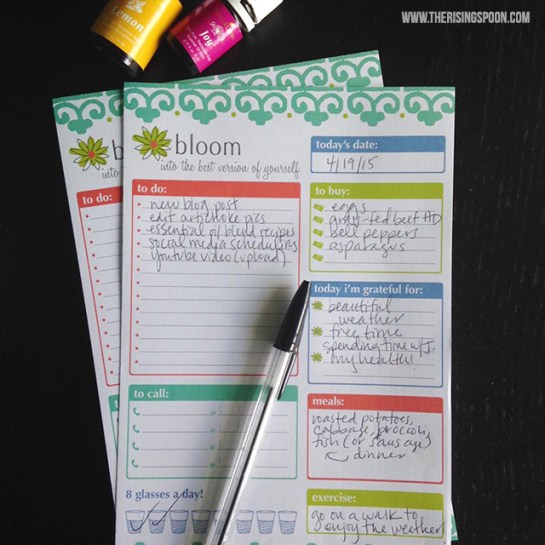 WWW.THERISINGSPOON.COM
Lemon
Joy
bloom
into the best version of yourself
today's date:
4/19/15
to do:
new blog post
edit artichoke pics
essential oil blend recipes
social media scheduling
youtube video (upload)
to buy:
eggs
grass-fed beef
bell peppers
asparagus
today i'm grateful for:
beautiful
weather
free time
spending time w/J.
my health!
to call:
meals:
roasted potatoes,
cabbage, broccoli,
fish (or sausage)
dinner
8 glasses a day!
exercise:
go on a walk to
enjoy the weather
b
into
to do: